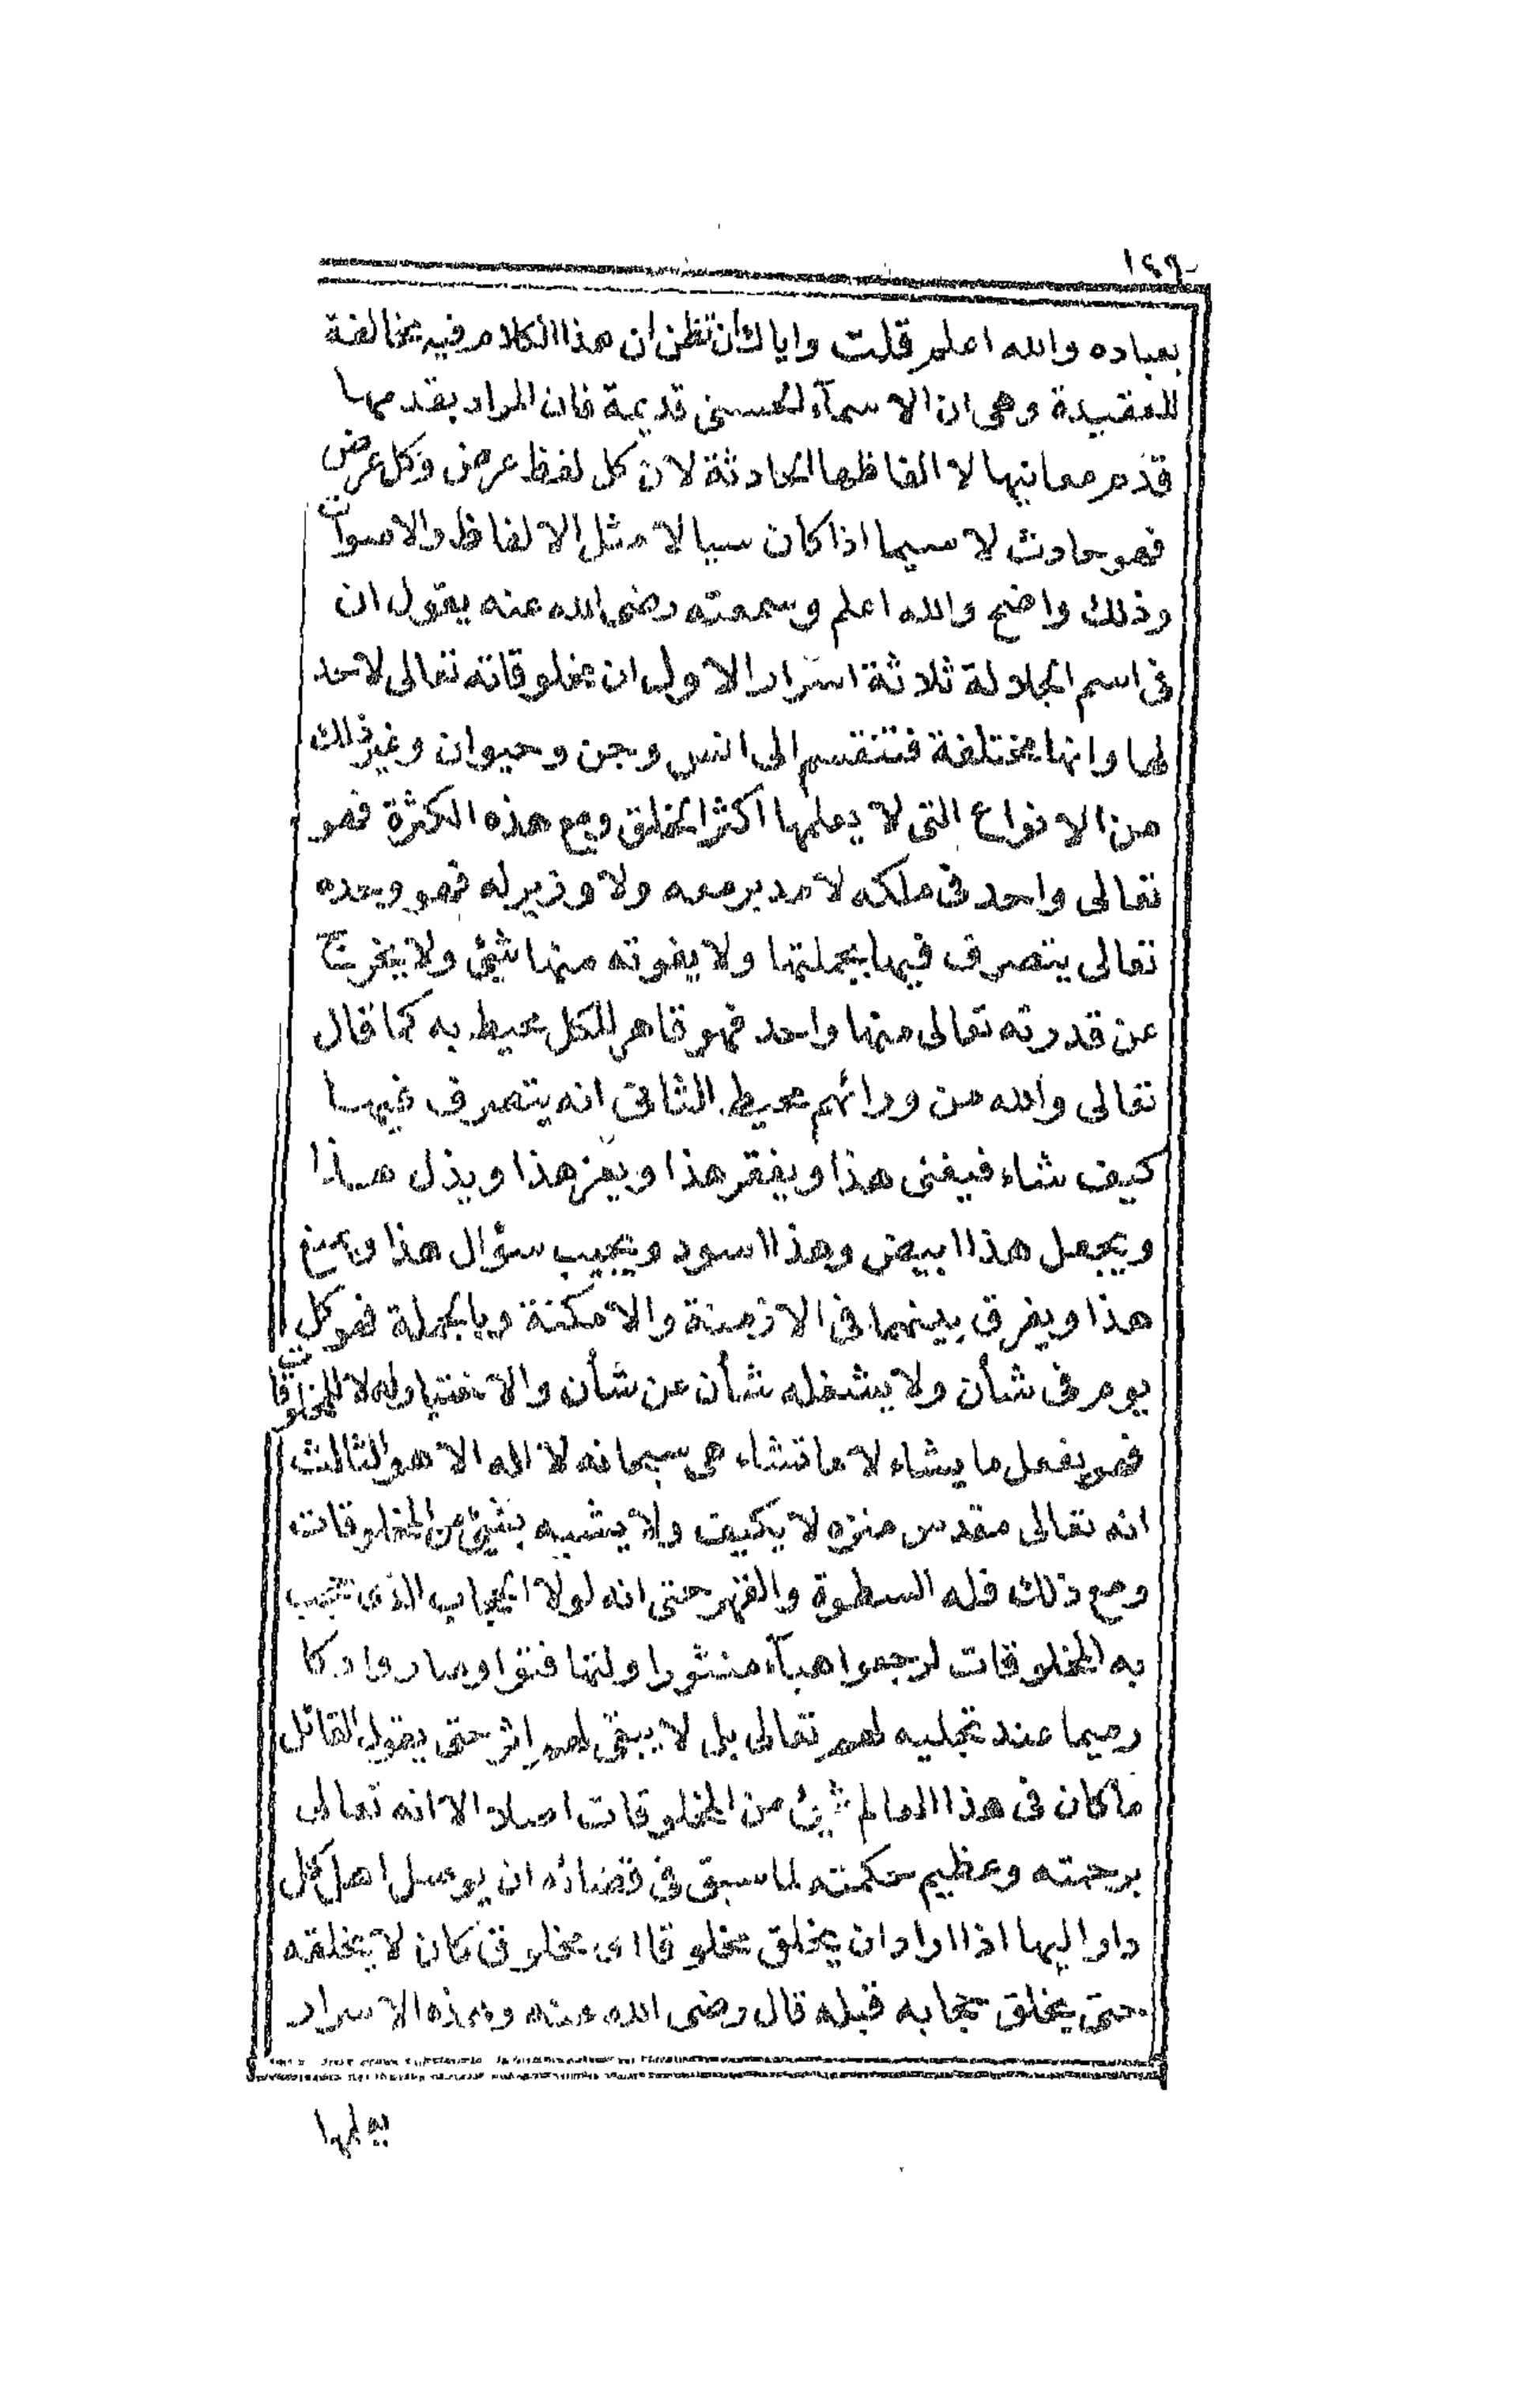 ١٤٩
بعباده والله اعلم قلت واياك ان تظن ان هذا الكلام فيه مخالفة
للعقيدة وهى ان الاسمآء الحسنى قديمة فان المراد بقدمها
قدم معانيها لا الفاظها الحادثة لان كل لفظ عرض وكل عرض
فهو حادث لا سيما اذا كان سيالا مثل الالفاظ والاصوات
وذلك واضح والله اعلم وسمعته رضى الله عنه يقول ان
فى اسم الجلالة ثلاثة اسرار الاول ان مخلوقاته تعالى لا حد
لها وانها مختلفة فتنقسم الى انس وجن وحيوان وغير ذلك
من الانواع التى لا يعلمها اكثر الخلق ومع هذه الكثرة فهو
تعالى واحد فى ملكه لا مدبر معه ولا وزير له فهو وحده
تعالى يتصرف فيها بجملتها ولا يفوته منها شئ ولا يخرج
عن قدرته تعالى منها واحد فهو قاهر للكل محيط به كما قال
تعالى والله من ورائهم محيط الثانى انه يتصرف فيها
كيف شاء فيغنى هذا ويفقر هذا ويعز هذا ويذل هذا
ويجعل هذا ابيض وهذا اسود ويجيب سؤال هذا ويمنع
هذا ويفرق بينهما فى الازمنة والامكنة وبالجملة فهو كل
يوم فى شأن ولا يشغله شأن عن شأن والاختيار له لا للمخلوقات
فهو يفعل ما يشاء لا ما تشاء هى سبحانه لا اله الا هو الثالث
انه تعالى مقدس منزه لا يكيف ولا يشبه بشئ من المخلوقات
ومع ذلك فله السطوة والقهر حتى انه لولا الحجاب الذى حجب
به المخلوقات لرجعوا هبآء منثورا ولتهافتوا وصاروا دكا
رميما عند تجليه لهم تعالى بل لا يبقى لهم اثر حتى يقول القائل
ما كان فى هذا العالم شئ من المخلوقات اصلا الا انه تعالى
برحمته وعظيم حكمته لما سبق فى قضائه ان يوصل اهل كل
دار اليها اذا اراد ان يخلق مخلوقا اى مخلوق كان لا يخلقه
حتى يخلق حجابه قبله قال رضى الله عنه وهذه الاسرار
يعلمها